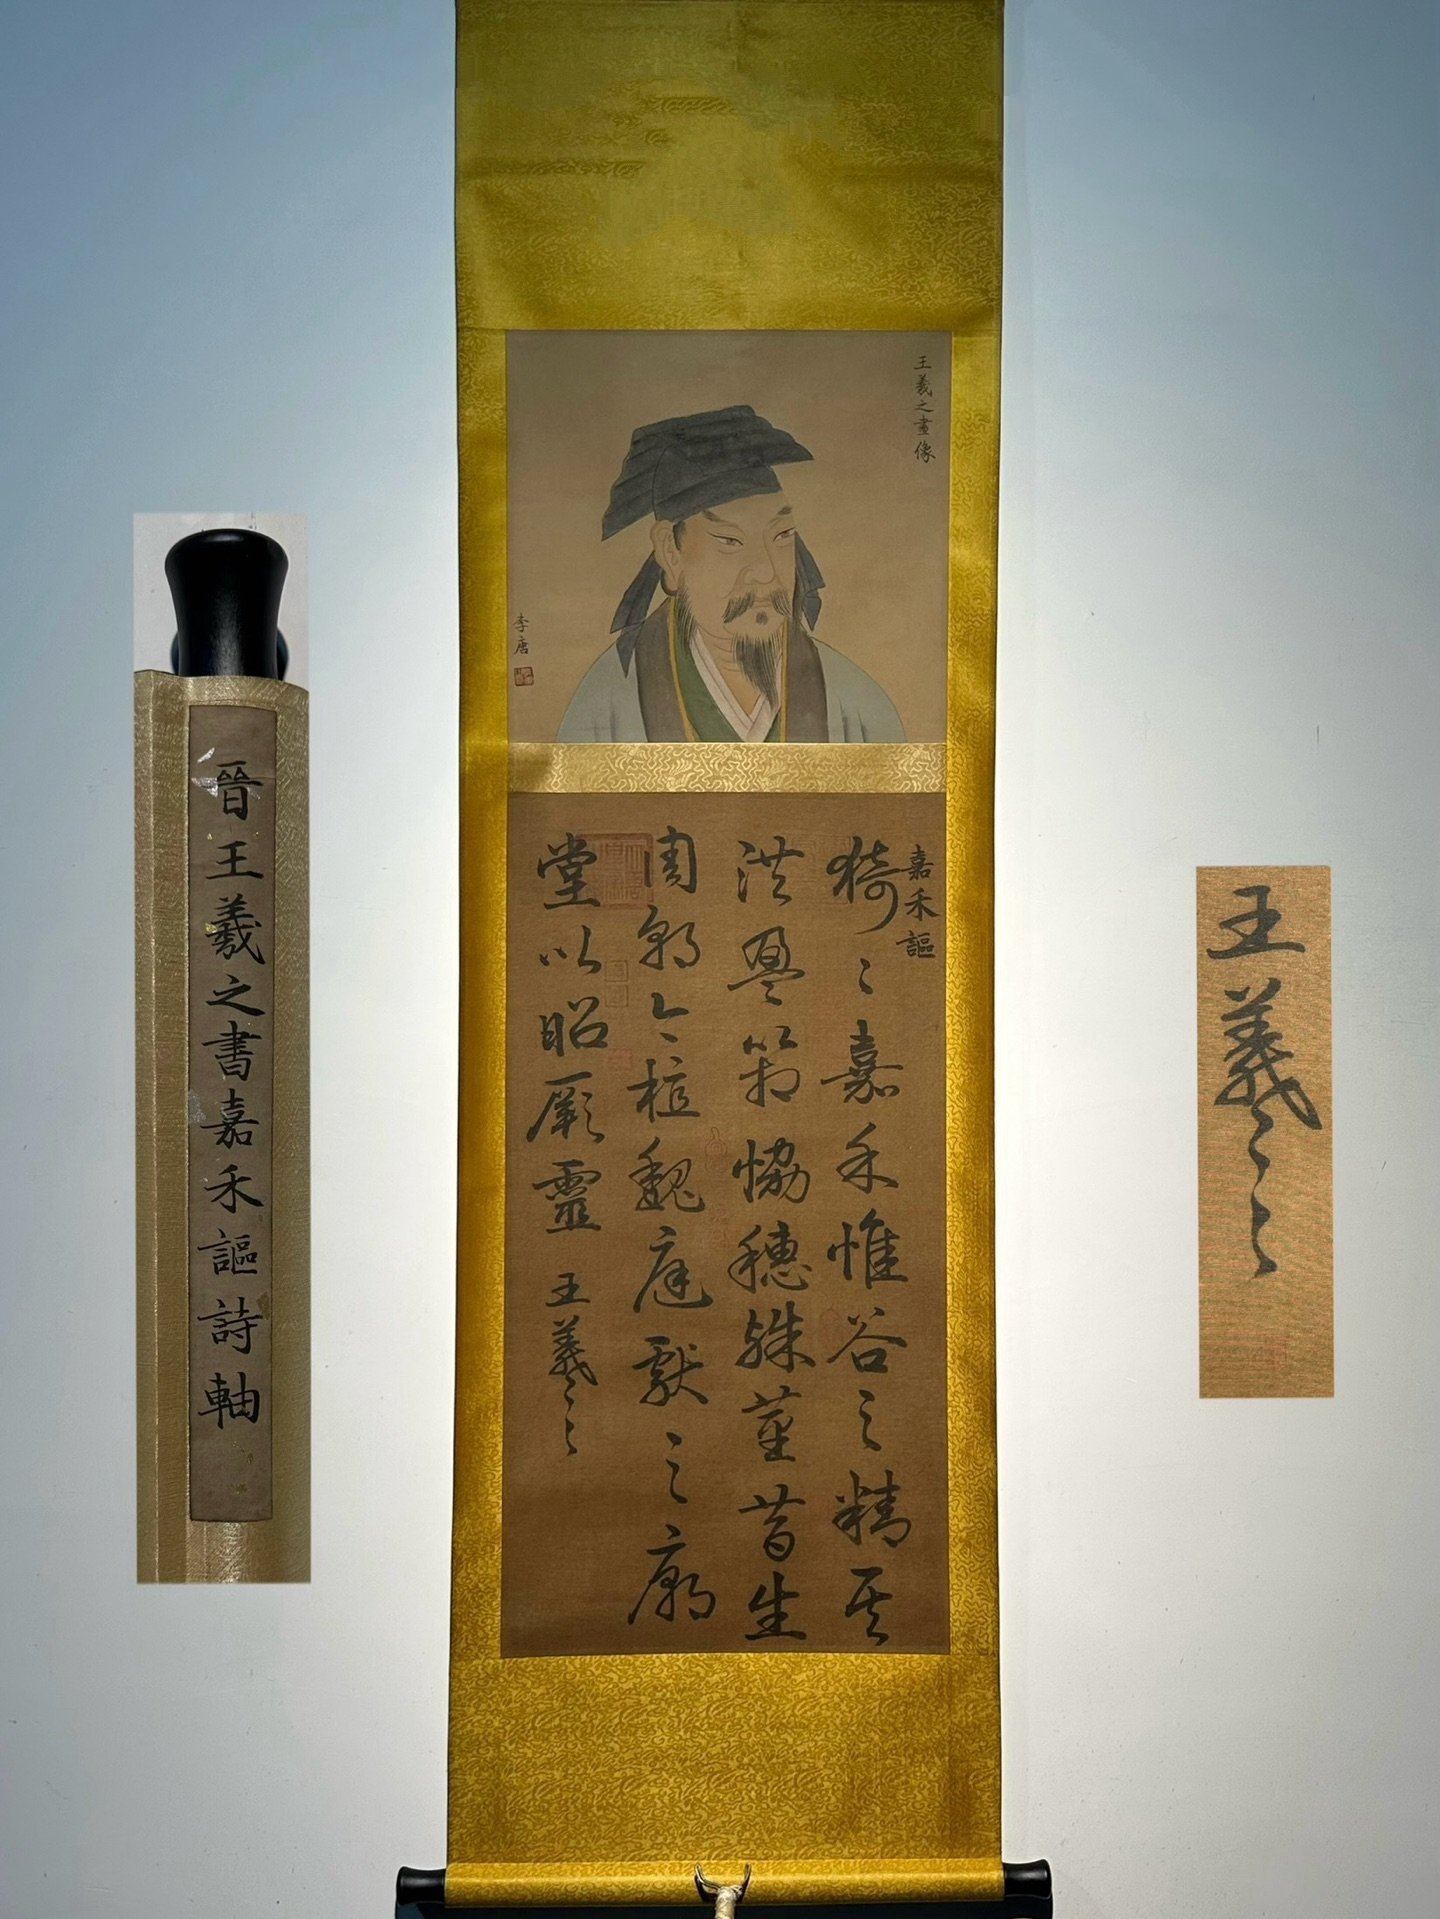 王羲之畫像
李唐
嘉禾謳
猗〻嘉禾惟谷之精其
洪盈箱恊穗殊莖昔生
周朝今植魏庭獻之廟
堂以昭厥靈 王羲之
晉王羲之書嘉禾謳詩軸
王羲之